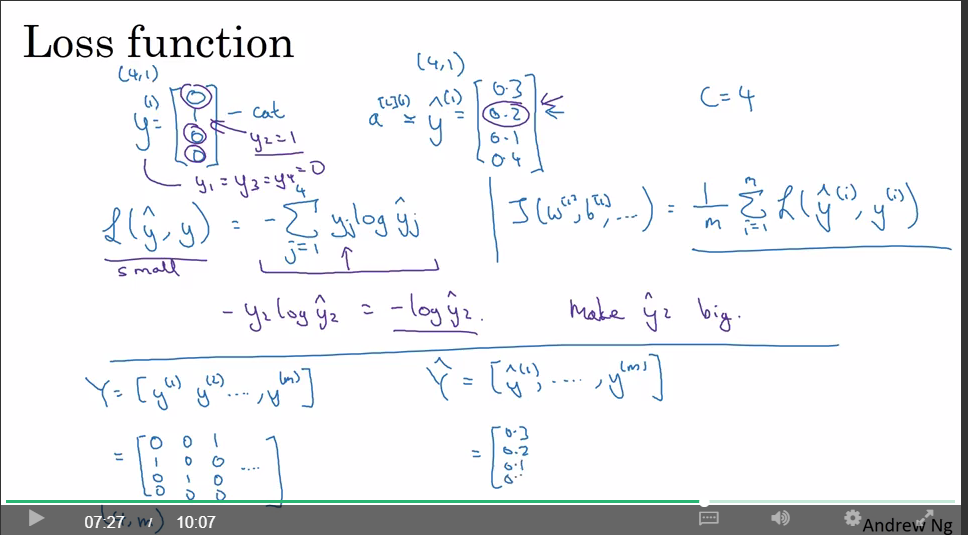 Loss function
(4,1)
y⁽ⁱ⁾ = [0 1 0 0] - cat
y₂ = 1
y₁ = y₃ = y₄ = 0
(4,1)
a^[L](i) ≃ ŷ⁽ⁱ⁾ = [0.3 0.2 0.1 0.4]
C = 4
ℒ(ŷ, y) = - Σ_{j=1}^{4} yⱼ log ŷⱼ
small
J(w^[1], b^[1], ...) = 1/m Σ_{i=1}^{m} ℒ(ŷ⁽ⁱ⁾, y⁽ⁱ⁾)
- y₂ log ŷ₂ = - log ŷ₂. Make ŷ₂ big.
Y = [y⁽¹⁾ y⁽²⁾ ...., y⁽ᵐ⁾]
= [0 0 1
1 0 0 ....
0 1 0
0 0 0]
Ŷ = [ŷ⁽¹⁾, ...., y⁽ᵐ⁾]
= [0.3
0.2
0.1
0..
07:27 / 10:07
Andrew Ng